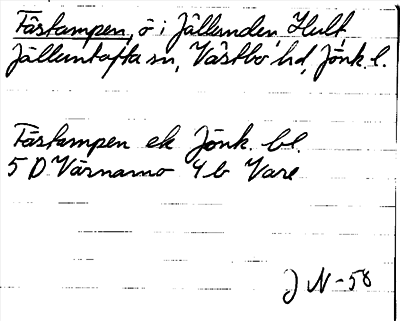 Fästampen, ö i Jällunden, Hult,
Jälluntofta sn, Västbo hd, Jönk. l.
Fästampen ek Jönk. bl.
5 D Värnamo 4 b Vare
J N-58